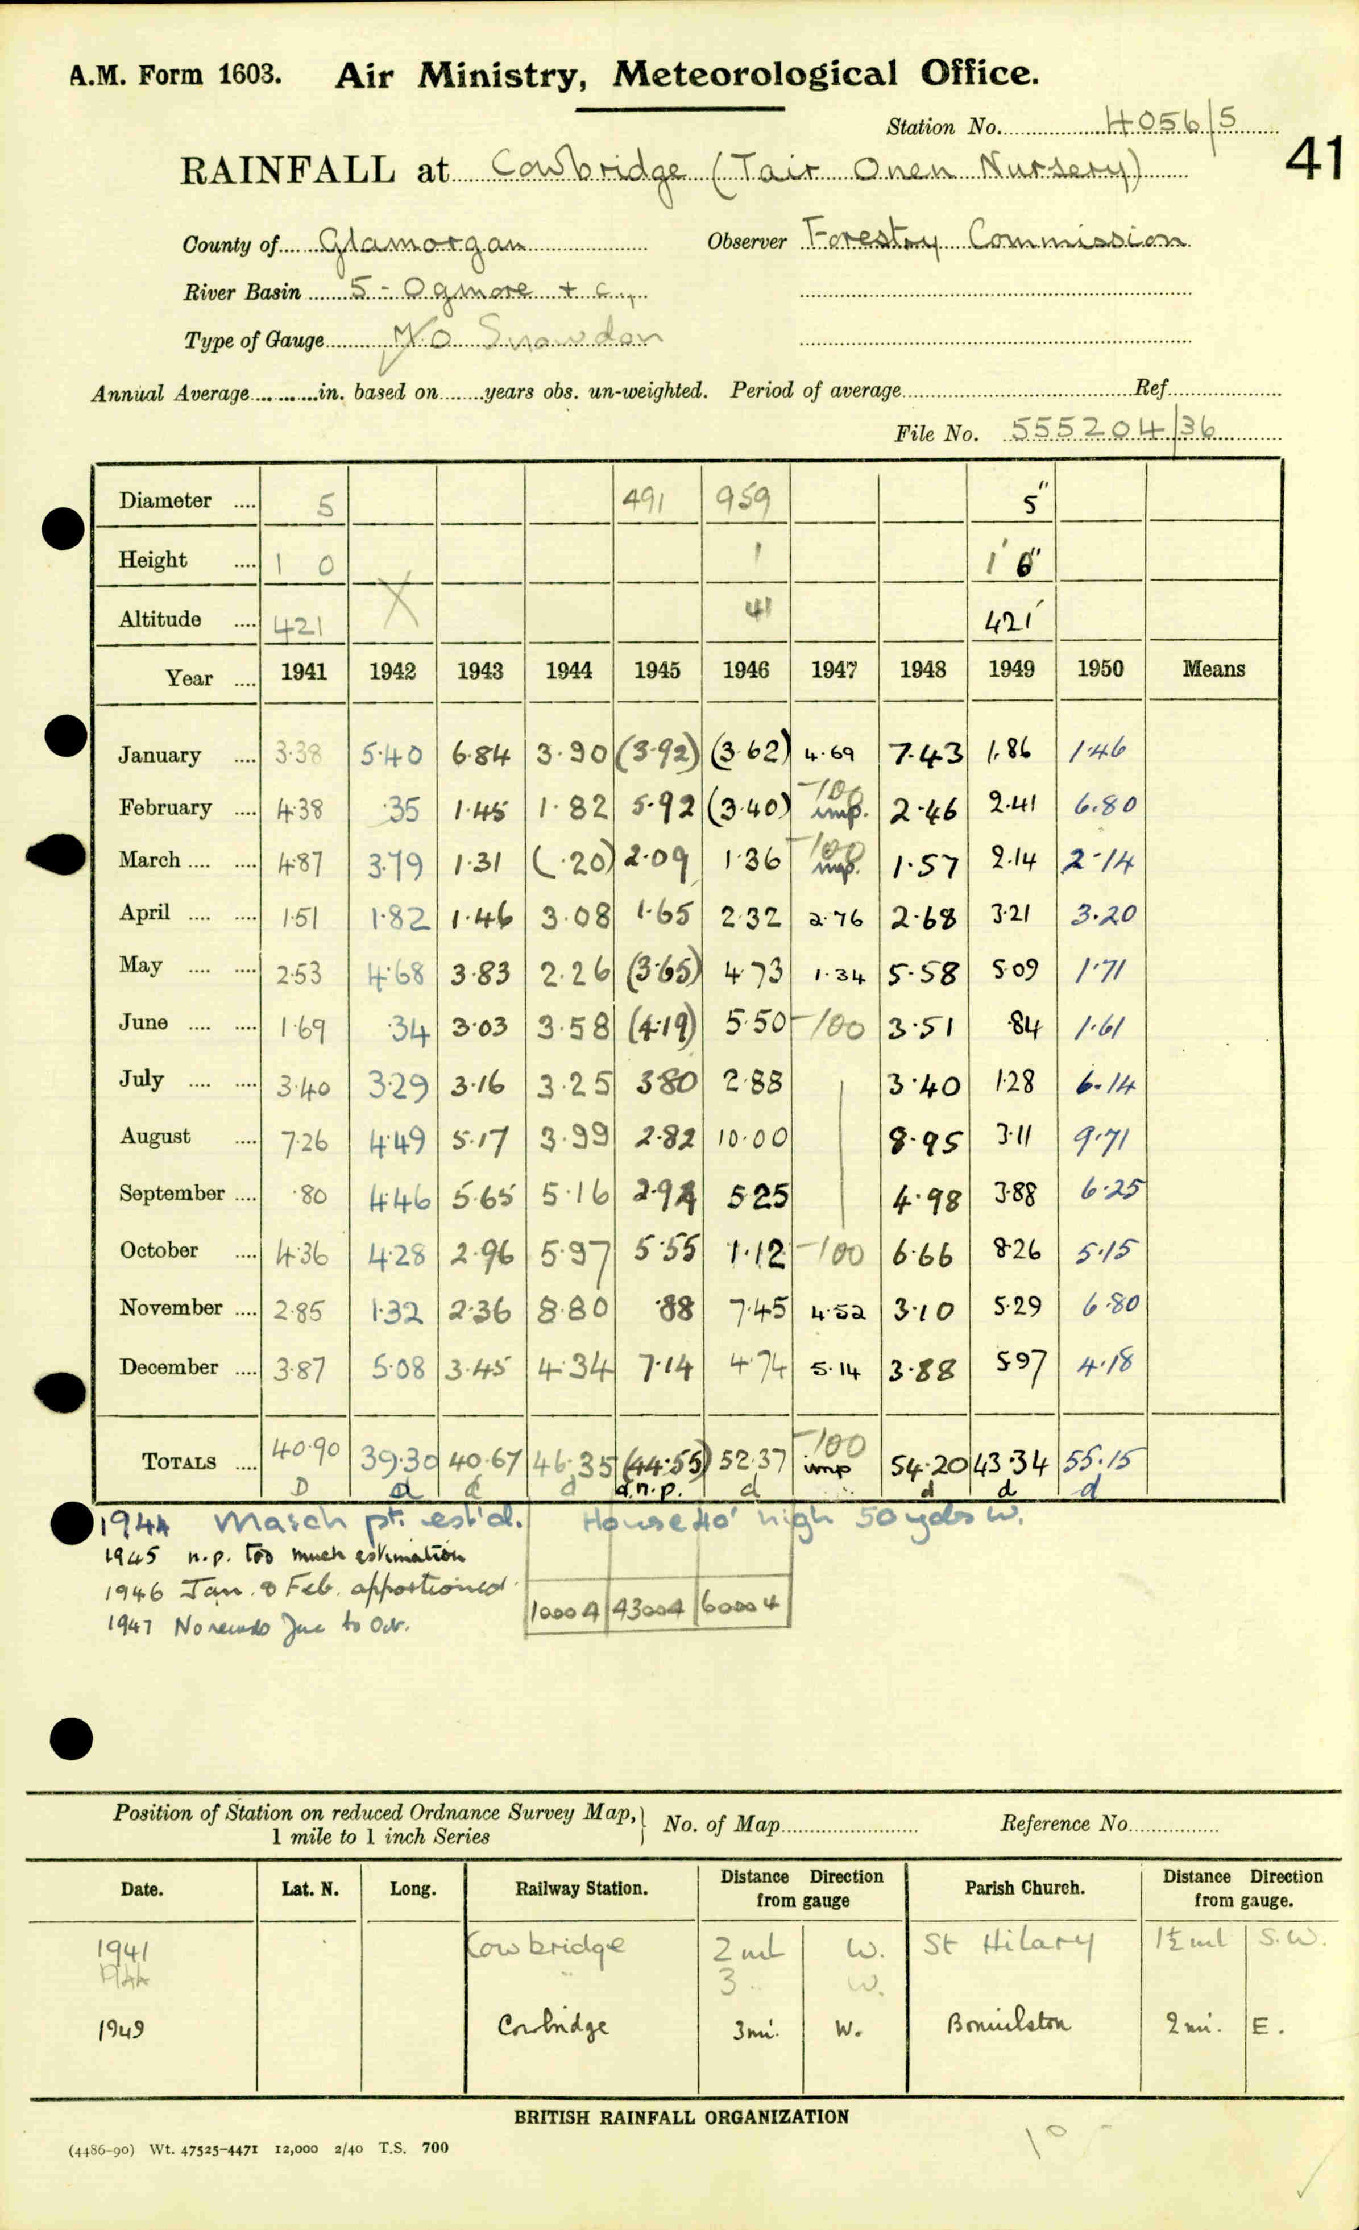 A.M. Form 1603. Air Ministry, Meteorological Office.
Station No. 4056/5
RAINFALL at Cowbridge (Tair Onen Nursery) 41
County of Glamorgan Observer Forestry Commission
River Basin 5 - Ogmore + c.,
Type of Gauge M.O Snowdon
Annual Average in. based on years obs. un-weighted. Period of average Ref
File No. 555204/36
Diameter 5 491 959 5"
Height 1 0 1 1' 0"
Altitude 421 X 41 421'
Year 1941 1942 1943 1944 1945 1946 1947 1948 1949 1950 Means
January 3·38 5·40 6·84 3·90 (3·92) (3·62) 4·69 7·43 1·86 1·46
February 4·38 ·35 1·45 1·82 5·92 (3·40) -100 imp. 2·46 2·41 6·80
March 4·87 3·79 1·31 (·20) 2·09 1·36 -100 imp. 1·57 2·14 2·14
April 1·51 1·82 1·46 3·08 1·65 2·32 2·76 2·68 3·21 3·20
May 2·53 4·68 3·83 2·26 (3·65) 4·73 1·34 5·58 5·09 1·71
June 1·69 ·34 3·03 3·58 (4·19) 5·50 -100 3·51 ·84 1·61
July 3·40 3·29 3·16 3·25 3·80 2·88 3·40 1·28 6·14
August 7·26 4·49 5·17 3·99 2·82 10·00 8·95 3·11 9·71
September ·80 4·46 5·65 5·16 2·94 5·25 4·98 3·88 6·25
October 4·36 4·28 2·96 5·97 5·55 1·12 -100 6·66 8·26 5·15
November 2·85 1·32 2·36 8·80 ·88 7·45 4·52 3·10 5·29 6·80
December 3·87 5·08 3·45 4·34 7·14 4·74 5·14 3·88 5·97 4·18
TOTALS 40·90 39·30 40·67 46·35 (44·55) 52·37 -100 imp 54·20 43·34 55·15
D d d d d.n.p. d d d d
1944 March pt. est'd. House 40' high 50 yds W.
1945 n.p. too much estimation
1946 Jan. & Feb. apportioned.
1000A 4300A 6000A
1947 No records June to Oct.
Position of Station on reduced Ordnance Survey Map, 1 mile to 1 inch Series No. of Map Reference No.
Date. Lat. N. Long. Railway Station. Distance Direction from gauge Parish Church. Distance Direction from gauge.
1941 Cowbridge 2 ml W. St Hilary 1½ ml S.W.
1944 " 3 " W.
1949 Cowbridge 3mi. W. Bonvilston 2 mi. E.
BRITISH RAINFALL ORGANIZATION
(4486-90) Wt. 47525-4471 12,000 2/40 T.S. 700